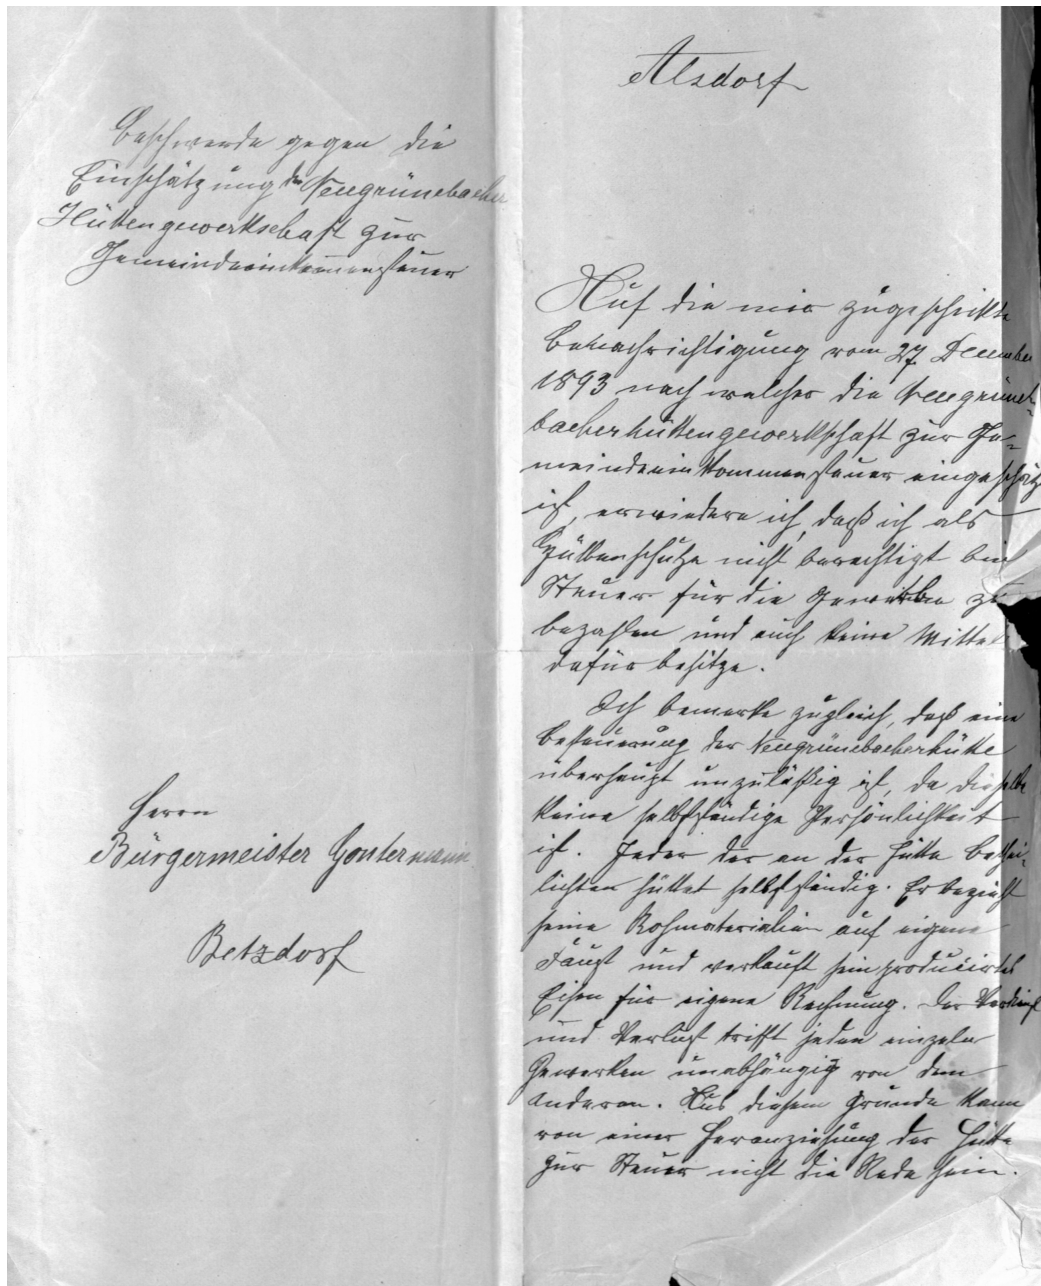 Beschwerde gegen die
Einschätzung der Neegrünebacher
Hüttengewerkschaft zur
Gemeindeeinkommensteuer
Herrn
Bürgermeister Gontermann
Betzdorf
Alsdorf
Auf die mir zugeschickte
Benachrichtigung vom 27 December
1893 nach welcher die Neegrüne-
bacherhüttengewerkschaft zur Ge=
meindeeinkommensteuer eingeschätzt
ist, erwiedere ich, daß ich als
Hüttenschulze nicht berechtigt bin
Steuer für die Gewerken zu
bezahlen und auch keine Mittel
dafür besitze.
Ich bemerke zugleich, daß eine
Besteuerung der Neegrünebacherhütte
überhaupt unzuläßig ist, da dieselbe
keine selbstständige Persönlichkeit
ist. Jeder der an der Hütte bethei-
lichten hüttet selbstständig. Er bezieht
seine Rohmaterialien auf eigene
Faust und verkauft sein producirtes
Eisen für eigene Rechnung. Der Verdienst
und Verlust trifft jeden einzeln
Gewerken unabhängig von dem
anderen. Aus diesem Grunde kann
von einer Heranziehung der Hütte
zur Steuer nicht die Rede sein.